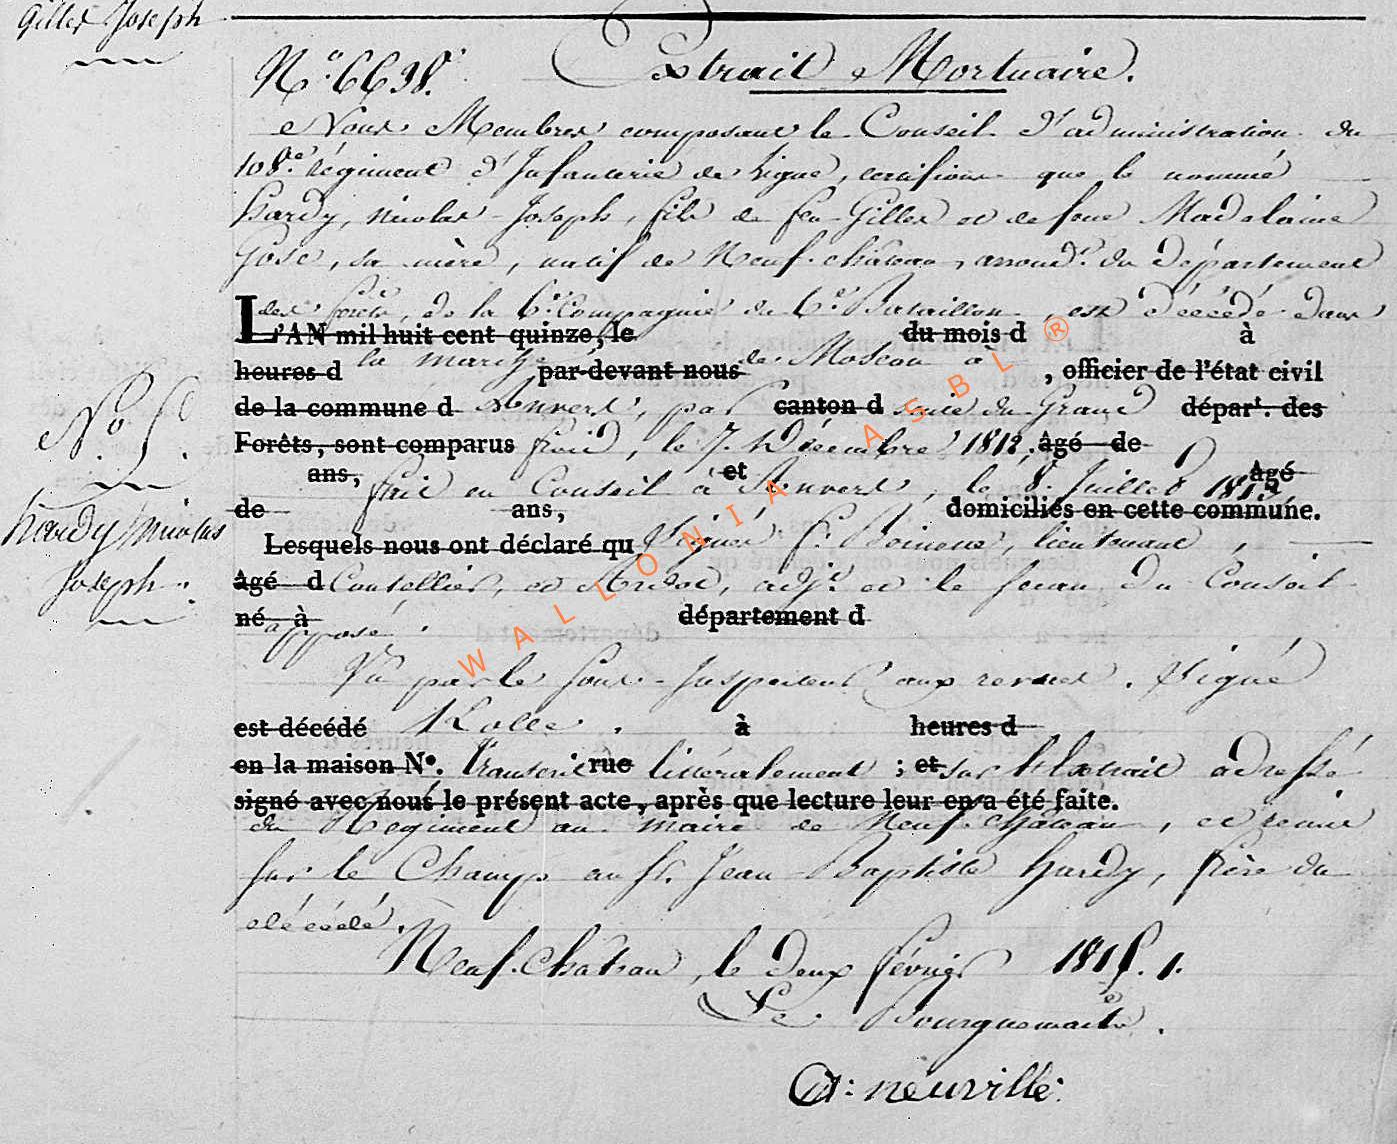 Gilles Joseph
N.° 6638.
Extrait Mortuaire.
Nous Membres composant le Conseil d'administration du
108.e régiment d'Infanterie de Ligne, certifions que le nommé
hardy, nicolas-Joseph, fils de feu Gilles et de feue Madelaine
Gose, sa mère, natif de Neuf-château, arrond.t du département
des forêts, de la 6.e Compagnie du 6.e Bataillon, est décédé dans
L'AN mil huit cent quinze, le du mois d à
la marche de Moscou à
heures d par-devant nous , officier de l'état civil
de la commune d Anvers, par canton d suite du Grand dépar.t des
Forêts, sont comparus froid, le 7. Décembre 1812. âgé de
ans, et âgé
fait en Conseil à Anvers, le 8. Juillet 1813
de ans, domiciliés en cette commune.
Lesquels nous ont déclaré qu Signé f. lieutenant,
âgé d Coutellier, et adj.t et le Sceau du Conseil
né à département d
apposé.
Vu par le Sous-Inspecteur aux revues. Signé
est décédé Kolle. à heures d
en la maison N°. Transcrit rue littéralement ; et sur l'Extrait adressé
signé avec nous le présent acte, après que lecture leur en a été faite.
du Régiment au maire de Neuf-château, et remis
sur le Champ au Sr. Jean Baptiste hardy, frère du
décédé.
Neuf-Château, le deux février 1815.
Le Bourguemaitre.
A: neuville:
N.° 5.
hardy nicolas
Joseph.
WALLONIA ASBL ®